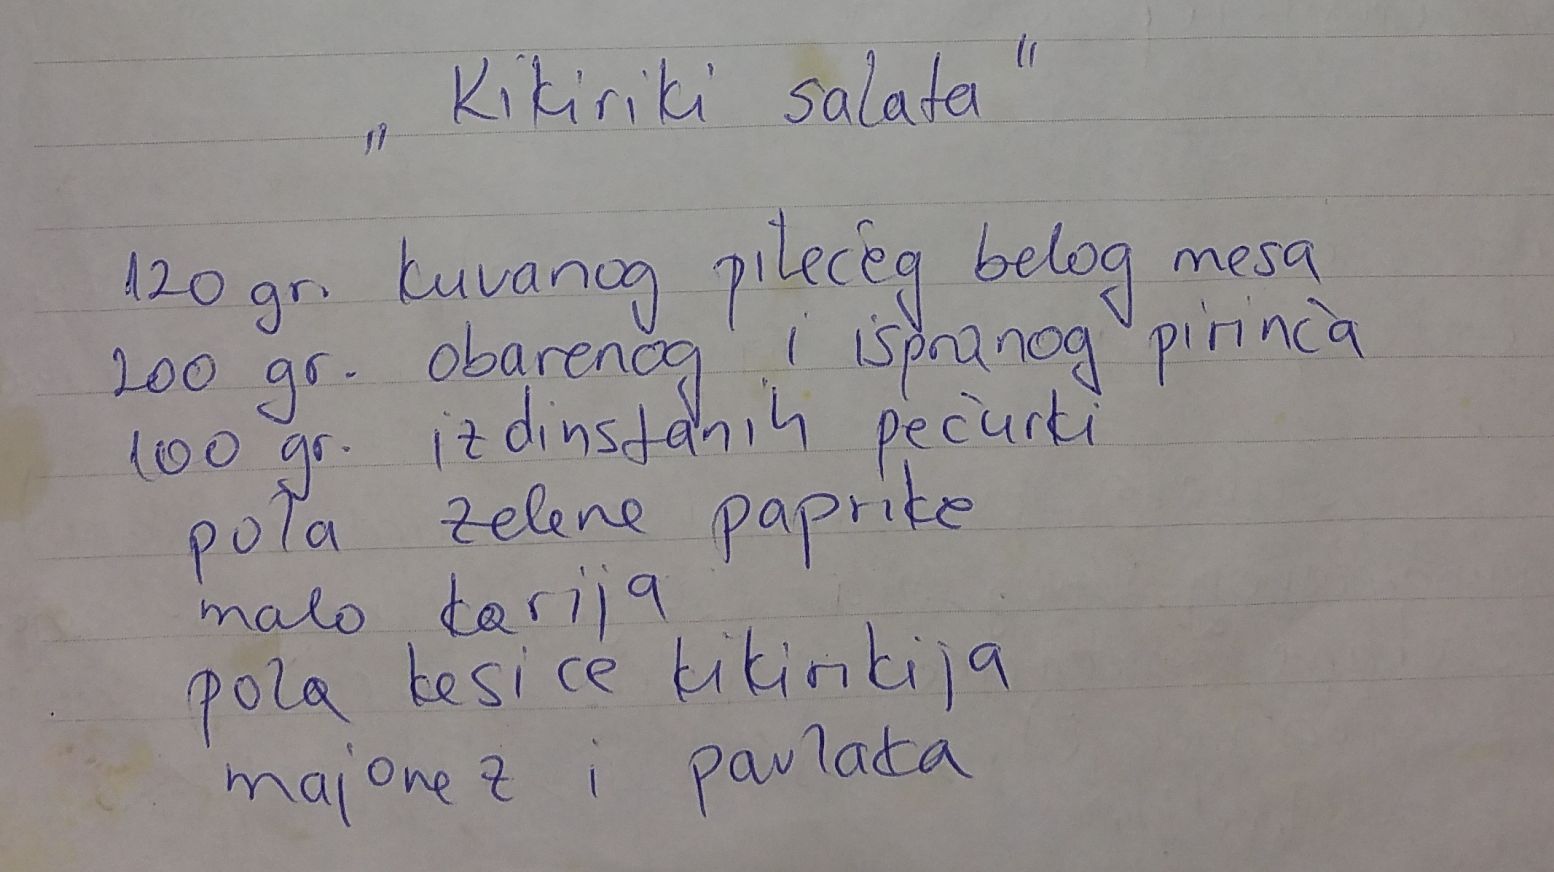 „Kikiriki salata"
120 gr. kuvanog pilećeg belog mesa
200 gr. obarenog i ispranog pirinča
100 gr. izdinstanih pečurki
pola zelene paprike
malo karija
pola kesice kikirikija
majonez i pavlaka